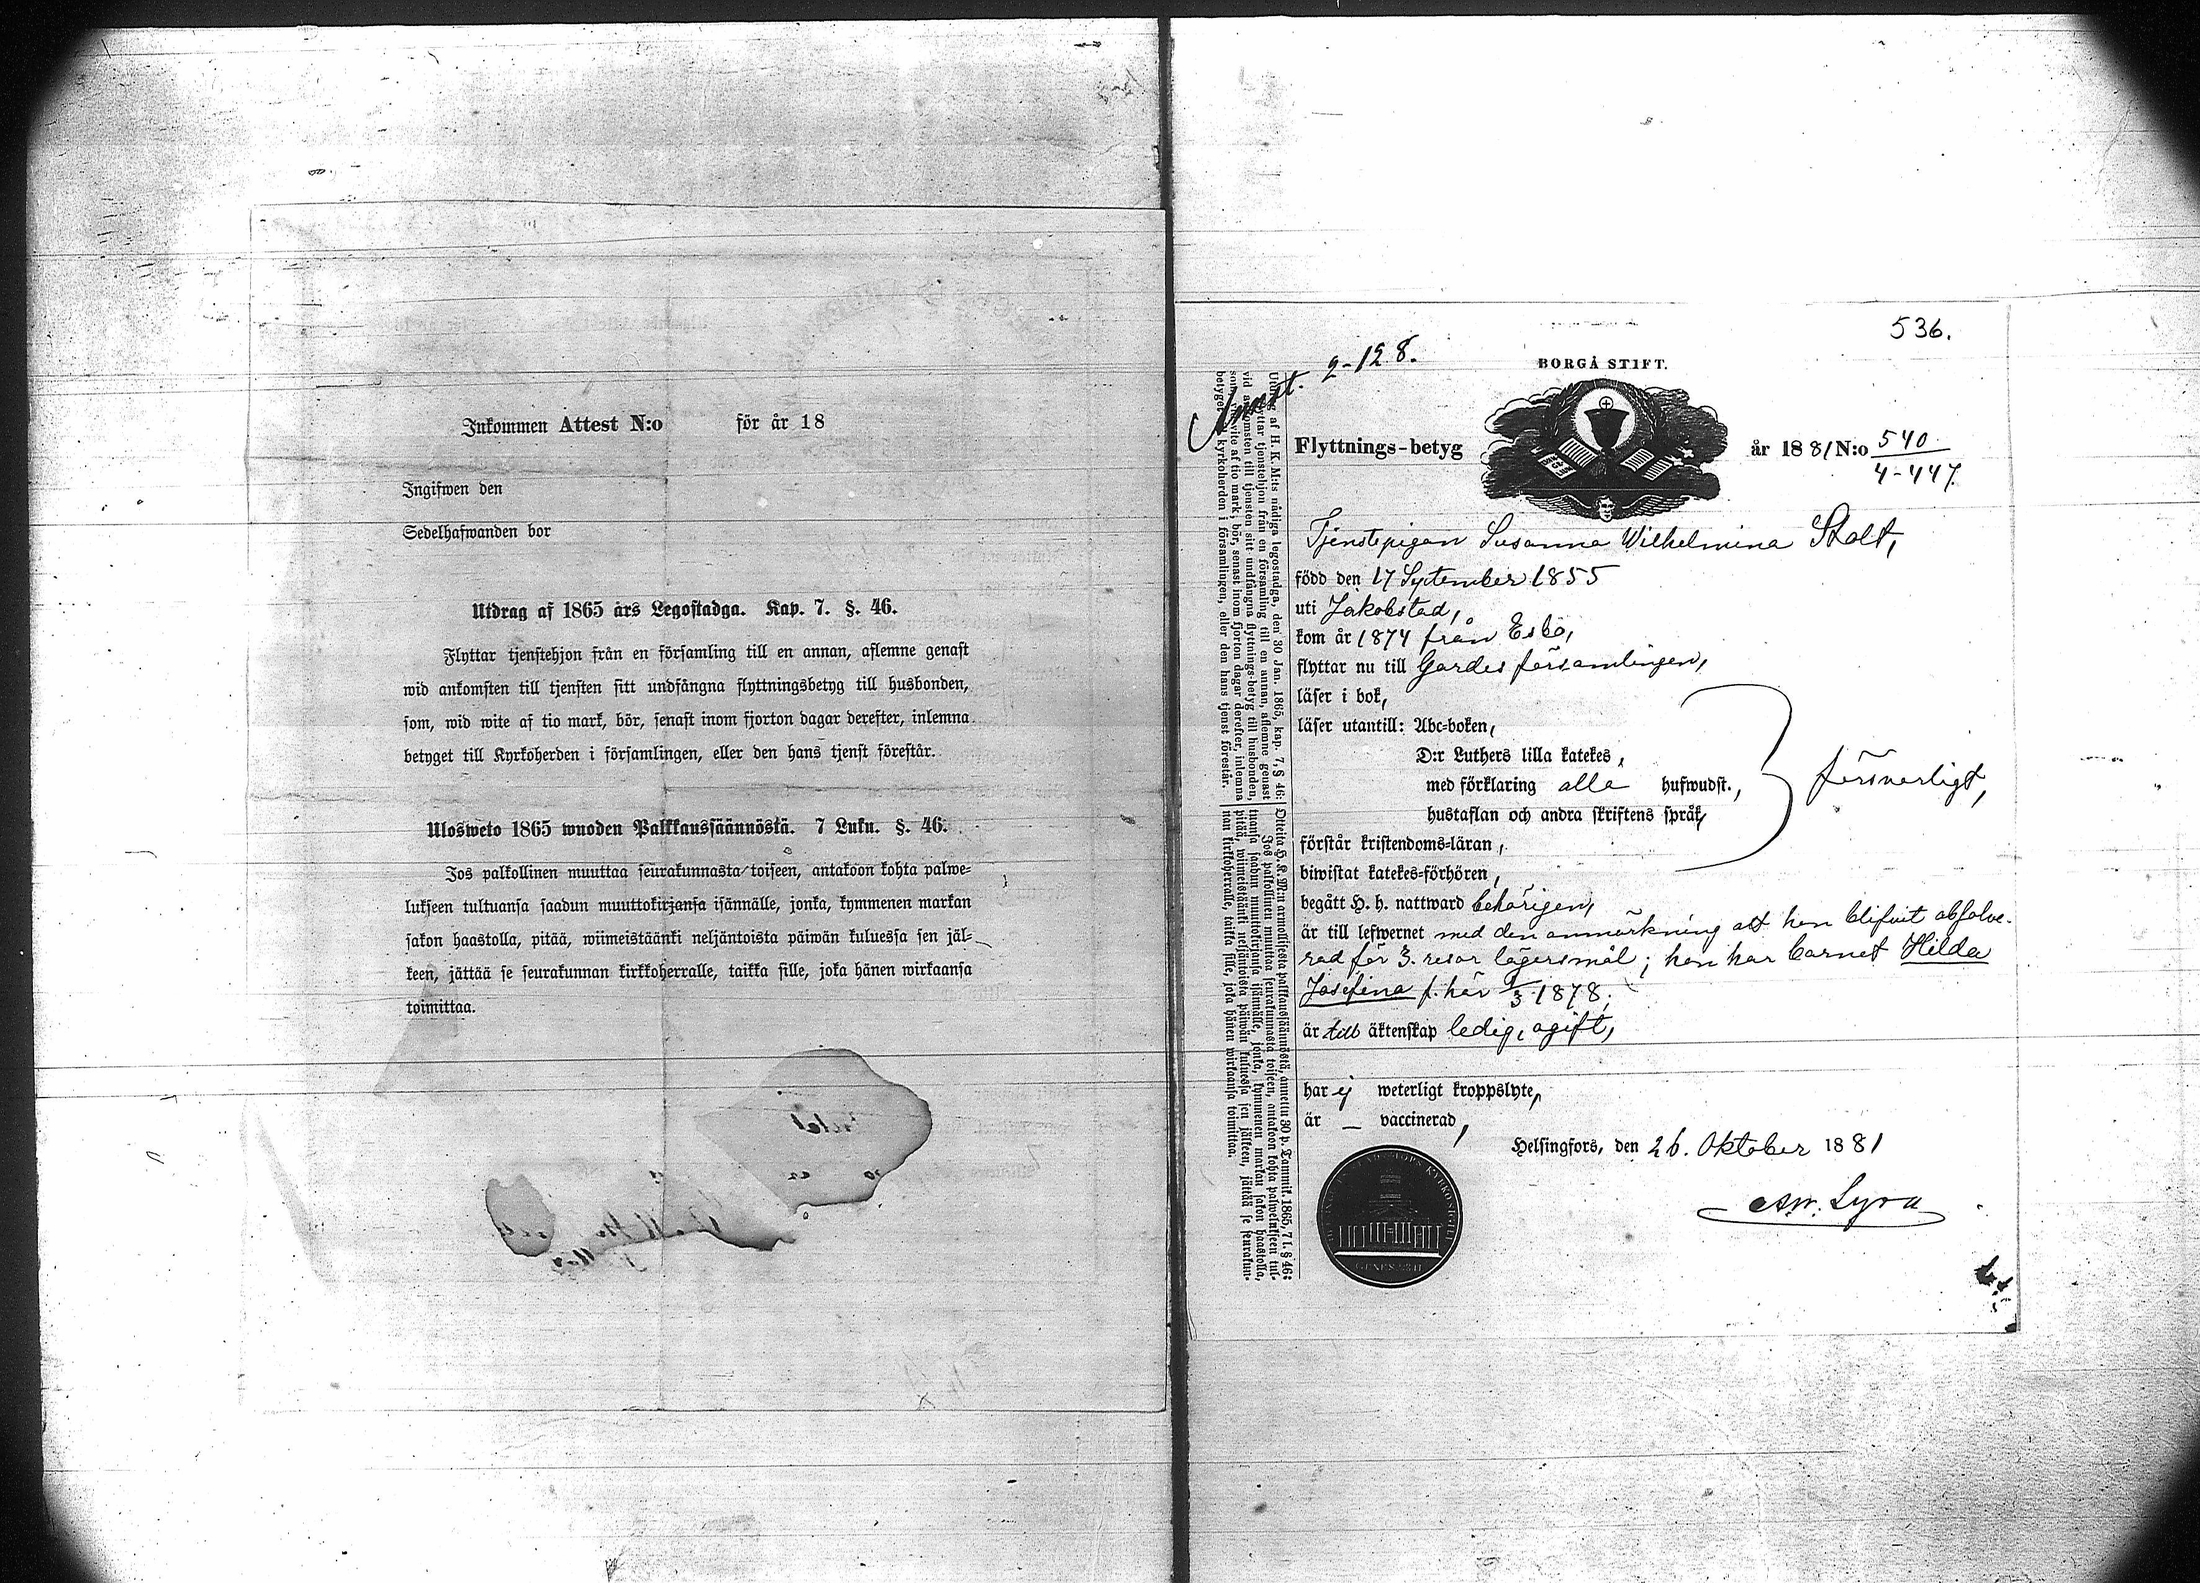 Inkommen Attest N:o för år 18
Ingifwen den
Sedelhafwanden bor
Utdrag af 1865 års Legostadga. Kap. 7. §. 46.
Flyttar tjenstehjon från en församling till en annan, aflemne genast
wid ankomsten till tjensten sitt undfångna flyttningsbetyg till husbonden,
som, wid wite af tio mark, bör, senast inom fjorton dagar derefter, inlemna
betyget till Kyrkoherden i församlingen, eller den hans tjenst förestår.
Ulosweto 1865 wuoden Palkkaussäännöstä. 7 Luku. §. 46.
Jos palkollinen muuttaa seurakunnasta toiseen, antakoon kohta palwe-
lukseen tultuansa saadun muuttokirjansa isännälle, jonka, kymmenen markan
sakon haastolla, pitää, wiimeistäänki neljäntoista päiwän kuluessa sen jäl-
keen, jättää se seurakunnan kirkkoherralle, taikka sille, joka hänen wirkaansa
toimittaa.
536.
2-128.
BORGÅ STIFT.
Flyttnings-betyg år 1881 N:o 540
4-447.
Tjenstepigan Susanna Wilhelmina Stolt,
född den 17 September 1855
uti Jakobstad,
kom år 1874 från Esbo,
flyttar nu till Gardes församlingen,
läser i bok,
läser utantill: Abc-boken,
D:r Luthers lilla katekes,
med förklaring alla hufwudst.,
hustaflan och andra skriftens språk,
försvarligt,
förstår kristendoms-läran,
biwistat katekes-förhören,
begått H. h. nattward behörigen,
är till lefwernet med den anmärkning att hon blifvit absolve-
rad för 3. resor lägersmål; hon har barnet Hilda
Josefina f. här /3 1878;
är till äktenskap ledig, ogift,
har ej weterligt kroppslyte,
är — vaccinerad,
Helsingfors, den 26. Oktober 1881
Aw. Lyra
Utdrag af H. K. M:ts nådiga legostadga, den 30 Jan. 1865, kap. 7, § 46:
Flyttar tjenstehjon från en församling till en annan, aflemne genast
vid ankomsten till tjensten sitt undfångna flyttnings-betyg till husbonden,
som, vid vite af tio mark, bör, senast inom fjorton dagar derefter, inlemna
betyget till kyrkoherden i församlingen, eller den hans tjenst förestår.
Otteita H. K. M:n armollisesta palkkaussäännöstä, annettu 30 p. Tammik. 1865, 7 l. § 46:
Jos palkollinen muuttaa seurakunnasta toiseen, antakoon kohta palwelukseen tul-
tuansa saadun muuttokirjansa isännälle, jonka, kymmenen markan sakon haastolla,
pitää, wiimeistäänki neljäntoista päiwän kuluessa sen jälkeen, jättää se seurakun-
nan kirkkoherralle, taikka sille, joka hänen wirkaansa toimittaa.